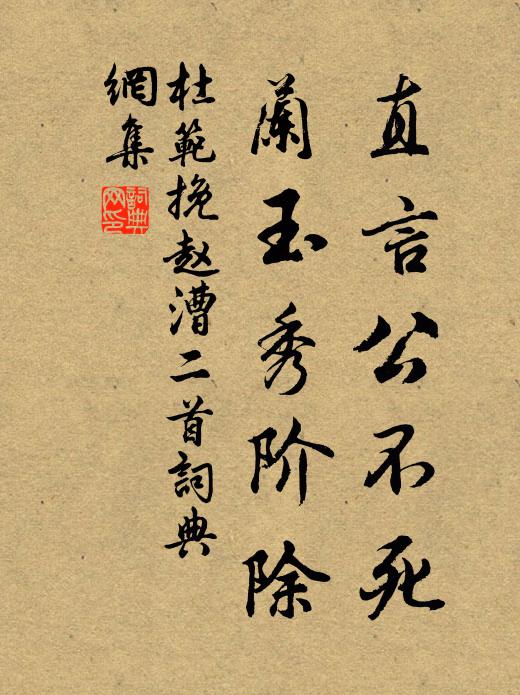 直言公不死
蘭玉秀阶除
杜範挽赵漕二首詞典
網集
詞典
网印